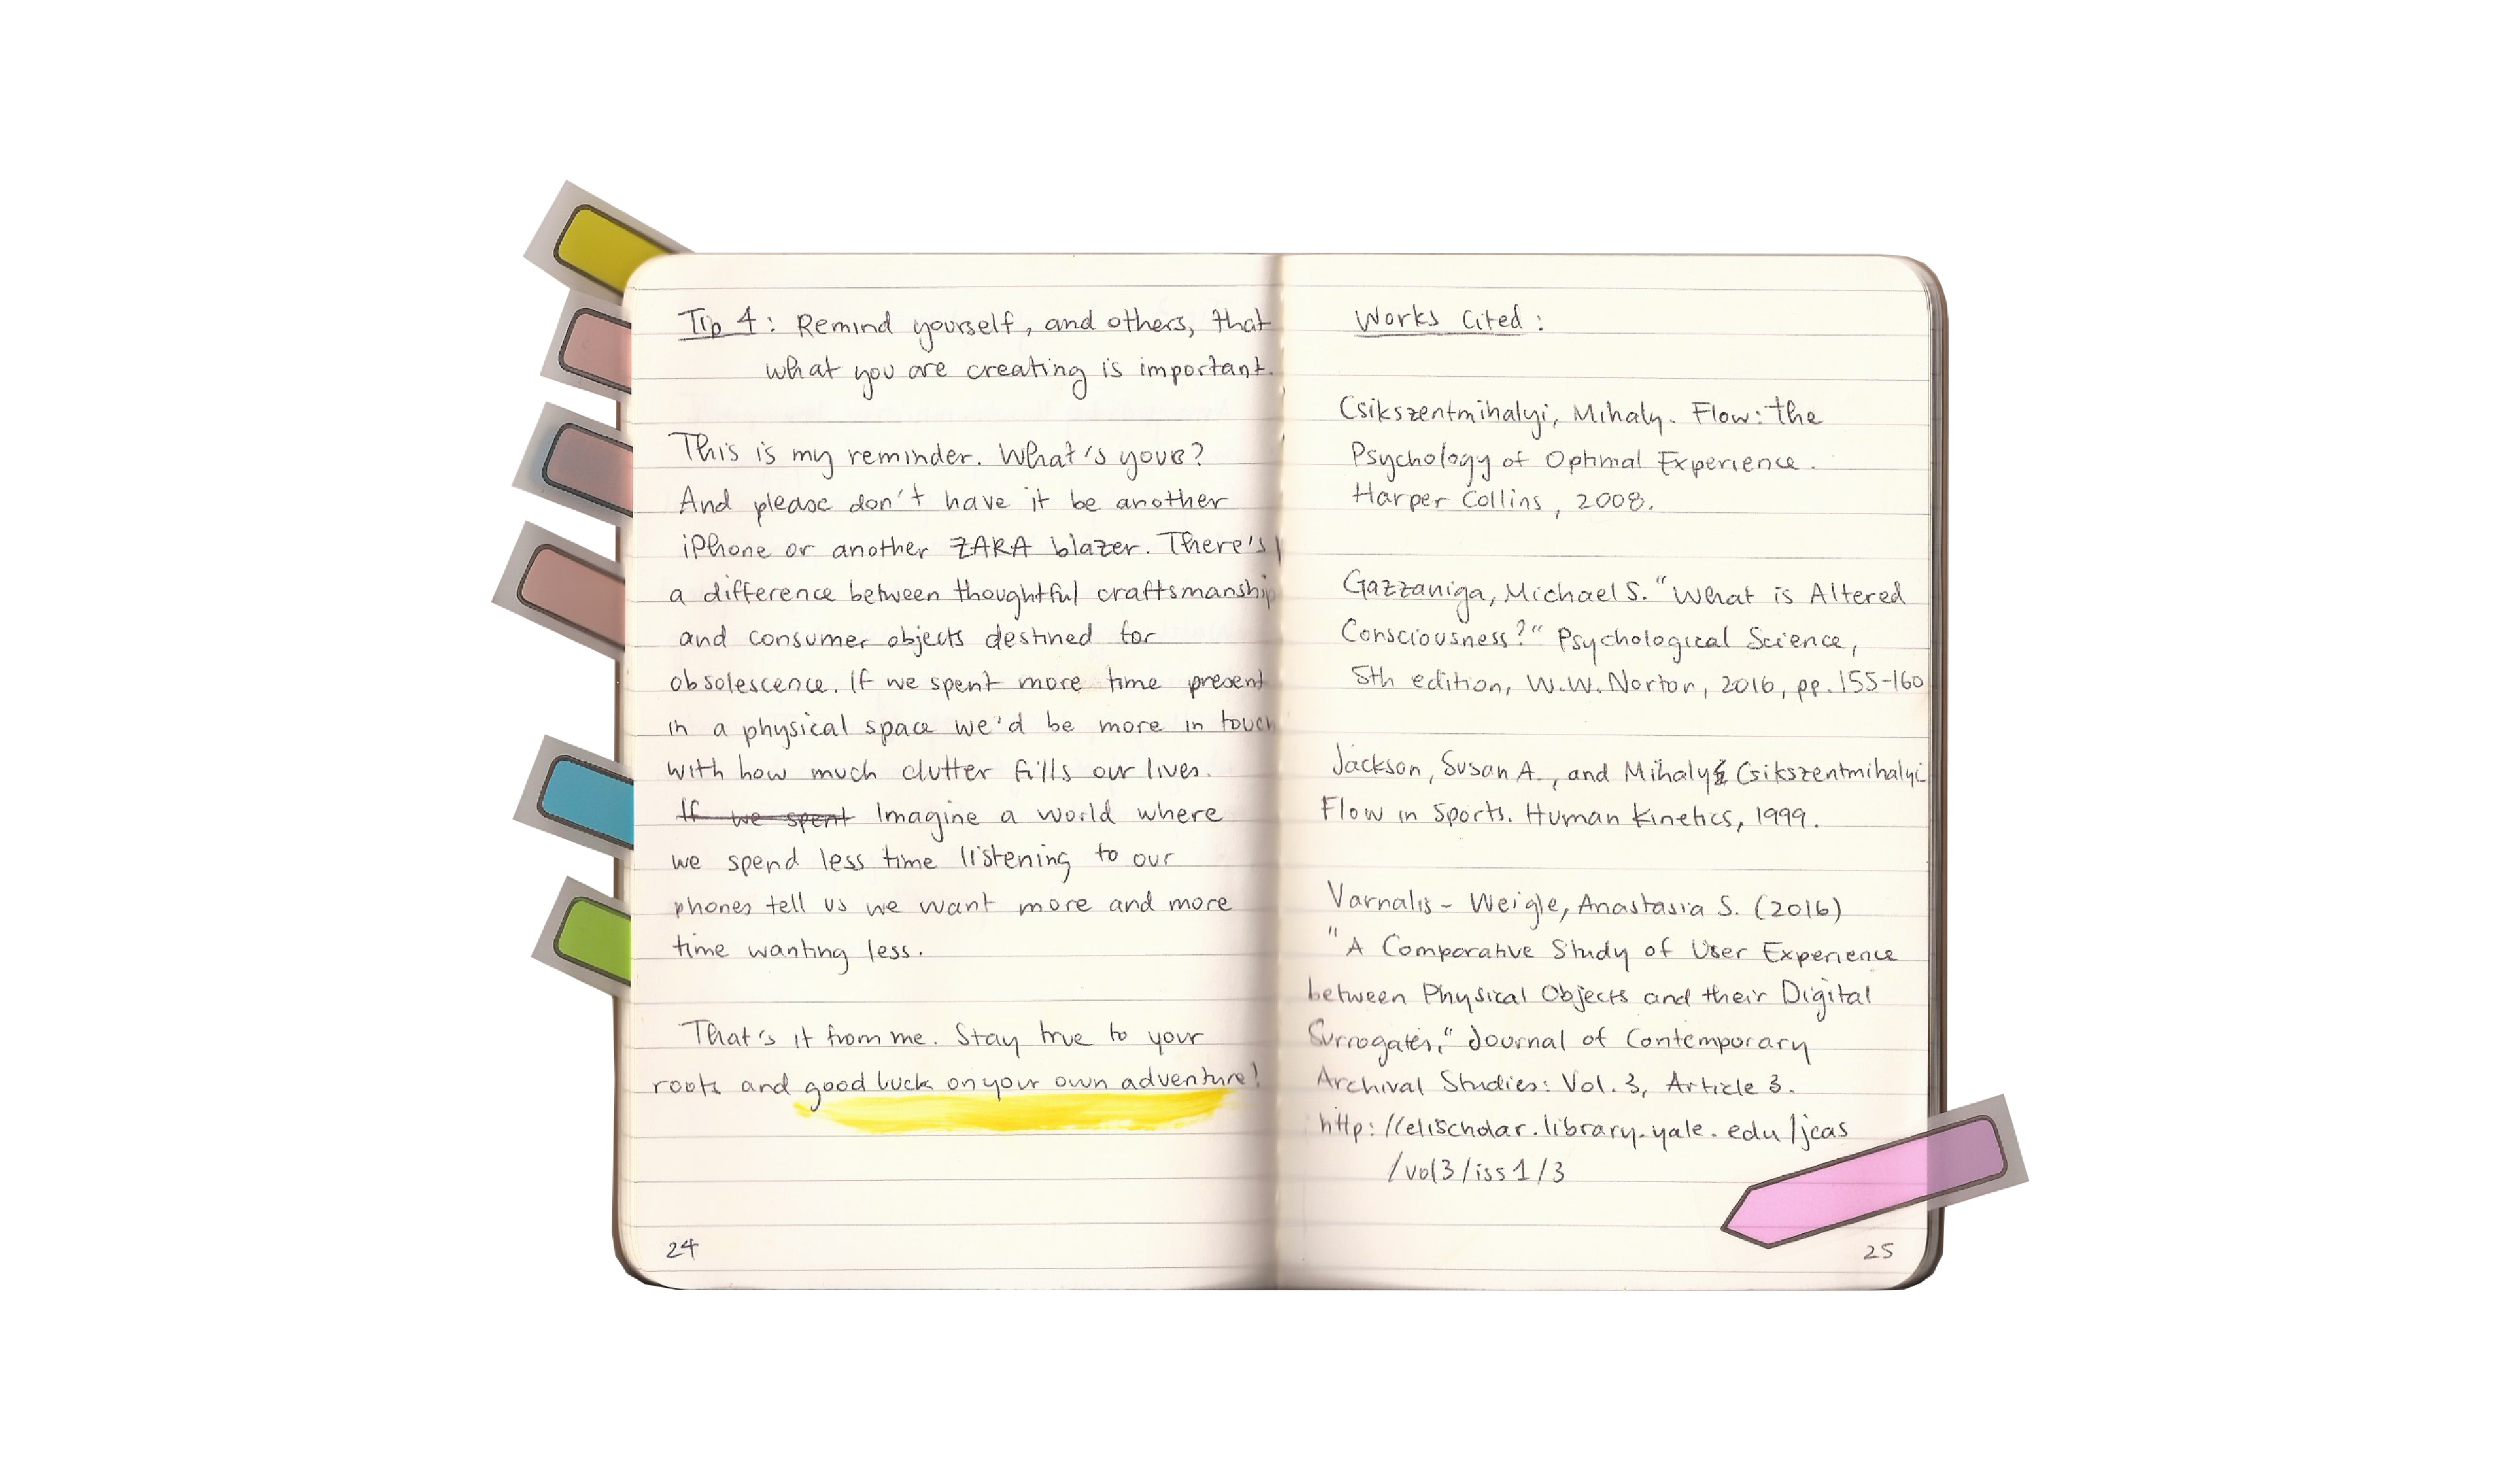 Tip 4: Remind yourself, and others, that
what you are creating is important.
This is my reminder. What's your?
And please don't have it be another
iPhone or another ZARA blazer. There's
a difference between thoughtful craftsmanship
and consumer objects destined for
obsolescence. If we spent more time present
in a physical space we'd be more in touch
with how much clutter fills our lives.
If we spent Imagine a world where
we spend less time listening to our
phones tell us we want more and more
time wanting less.
That's it from me. Stay true to your
roots and good luck on your own adventure!
24
Works Cited:
Csikszentmihalyi, Mihaly. Flow: the
Psychology of Optimal Experience.
Harper Collins, 2008.
Gazzaniga, Michael S. "What is Altered
Consciousness?" Psychological Science,
5th edition, W.W. Norton, 2016, pp. 155-160
Jackson, Susan A., and Mihaly Csikszentmihalyi
Flow in Sports. Human Kinetics, 1999.
Varnalis-Weigle, Anastasia S. (2016)
"A Comparative Study of User Experience
between Physical Objects and their Digital
Surrogates," Journal of Contemporary
Archival Studies: Vol. 3, Article 3.
http://elischolar.library.yale.edu/jcas
/vol3/iss1/3
25